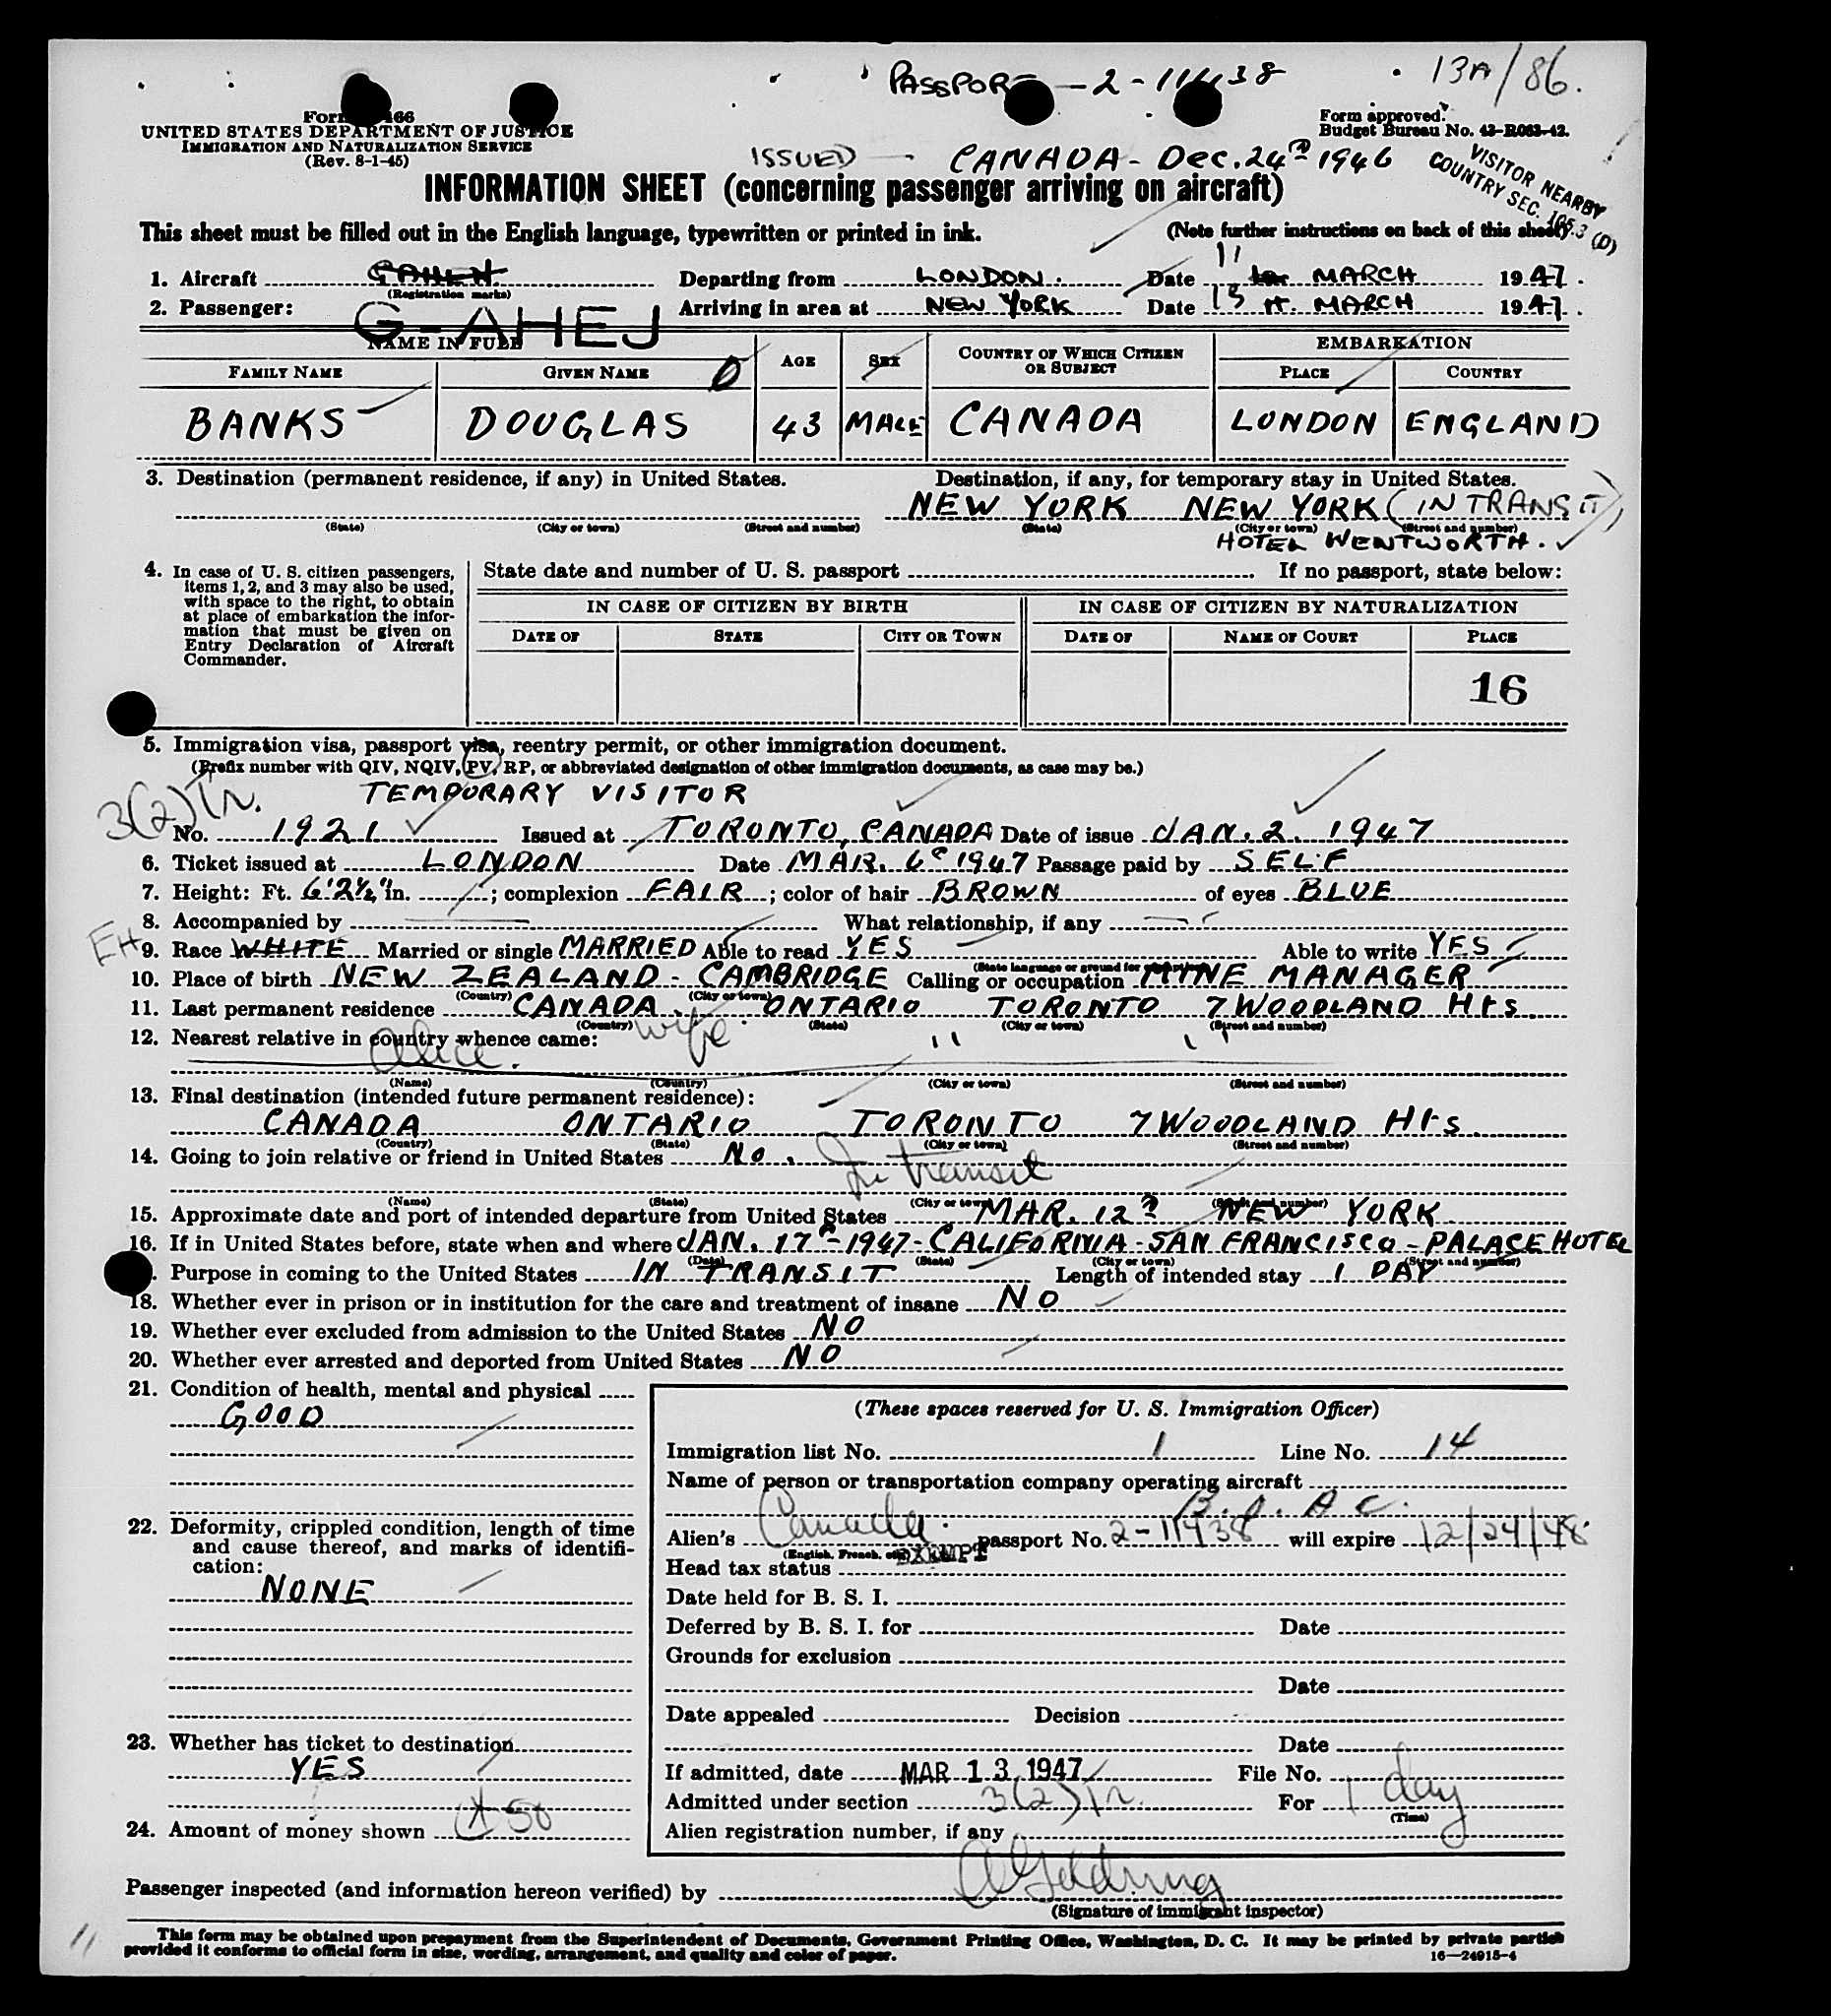 PASSPORT — 2 - 11438
13A/86.
Form 466
UNITED STATES DEPARTMENT OF JUSTICE
IMMIGRATION AND NATURALIZATION SERVICE
(Rev. 8-1-45)
Form approved.
Budget Bureau No. 43-R063-42.
ISSUED — CANADA - Dec. 24 1946
VISITOR NEARBY
COUNTRY SEC. 165.3 (D)
INFORMATION SHEET (concerning passenger arriving on aircraft)
This sheet must be filled out in the English language, typewritten or printed in ink. (Note further instructions on back of this sheet)
1. Aircraft GAHEN (Registration marks) Departing from LONDON. Date 11 MARCH 1947.
2. Passenger: G-AHEJ Arriving in area at NEW YORK Date 13 MARCH 1947.
NAME IN FULL AGE SEX COUNTRY OF WHICH CITIZEN OR SUBJECT EMBARKATION
FAMILY NAME GIVEN NAME D PLACE COUNTRY
BANKS DOUGLAS 43 MALE CANADA LONDON ENGLAND
3. Destination (permanent residence, if any) in United States. Destination, if any, for temporary stay in United States.
NEW YORK NEW YORK (IN TRANSIT)
(State) (City or town) (Street and number) (State) (City or town) (Street and number)
HOTEL WENTWORTH.
4. In case of U. S. citizen passengers, items 1, 2, and 3 may also be used, with space to the right, to obtain at place of embarkation the information that must be given on Entry Declaration of Aircraft Commander.
State date and number of U. S. passport If no passport, state below:
IN CASE OF CITIZEN BY BIRTH IN CASE OF CITIZEN BY NATURALIZATION
DATE OF STATE CITY OR TOWN DATE OF NAME OF COURT PLACE
16
5. Immigration visa, passport visa, reentry permit, or other immigration document.
(Prefix number with QIV, NQIV, PV, RP, or abbreviated designation of other immigration documents, as case may be.)
3(2)Tr. TEMPORARY VISITOR
No. 1921 Issued at TORONTO, CANADA Date of issue JAN. 2. 1947
6. Ticket issued at LONDON Date MAR. 6 1947 Passage paid by SELF
7. Height: Ft. 6' 2½" in. ; complexion FAIR ; color of hair BROWN of eyes BLUE
8. Accompanied by What relationship, if any
EH 9. Race WHITE Married or single MARRIED Able to read YES Able to write YES
10. Place of birth NEW ZEALAND - CAMBRIDGE Calling or occupation MINE MANAGER
(Country) (City or town)
11. Last permanent residence CANADA. ONTARIO TORONTO 7 WOODLAND Hts.
(Country) (State) (City or town) (Street and number)
12. Nearest relative in country whence came: wife
Alice. " "
(Name) (Country) (City or town) (Street and number)
13. Final destination (intended future permanent residence):
CANADA ONTARIO TORONTO 7 WOODLAND Hts.
(Country) (State) (City or town) (Street and number)
14. Going to join relative or friend in United States No. In transit
(Name) (State) (City or town) (Street and number)
15. Approximate date and port of intended departure from United States MAR. 12 NEW YORK
16. If in United States before, state when and where JAN. 17 - 1947 - CALIFORNIA - SAN FRANCISCO - PALACE HOTEL
(Date) (State) (City or town) (Street and number)
Purpose in coming to the United States IN TRANSIT Length of intended stay 1 DAY
18. Whether ever in prison or in institution for the care and treatment of insane NO
19. Whether ever excluded from admission to the United States NO
20. Whether ever arrested and deported from United States NO
21. Condition of health, mental and physical
GOOD
22. Deformity, crippled condition, length of time and cause thereof, and marks of identification:
NONE
23. Whether has ticket to destination
YES
24. Amount of money shown 50
(These spaces reserved for U. S. Immigration Officer)
Immigration list No. 1 Line No. 14
Name of person or transportation company operating aircraft
B.O.A.C.
Alien's Canada passport No. 2-11438 will expire 12/24/48
(English, French, etc.)
Head tax status EXEMPT
Date held for B. S. I.
Deferred by B. S. I. for Date
Grounds for exclusion
Date
Date appealed Decision
Date
If admitted, date MAR 13 1947 File No.
Admitted under section 3(2)Tr. For 1 day
(Time)
Alien registration number, if any
Passenger inspected (and information hereon verified) by
(Signature of immigrant inspector)
This form may be obtained upon prepayment from the Superintendent of Documents, Government Printing Office, Washington, D. C. It may be printed by private parties
provided it conforms to official form in size, wording, arrangement, and quality and color of paper.
16—24915-4
11